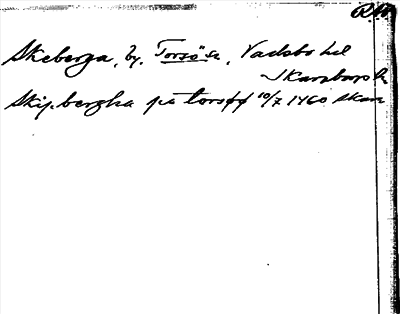 Skeberga, by, Torsö sn, Vadsbo hd
Skaraborgs
Skipbergha pa torsøø 10/7 1460 Skar